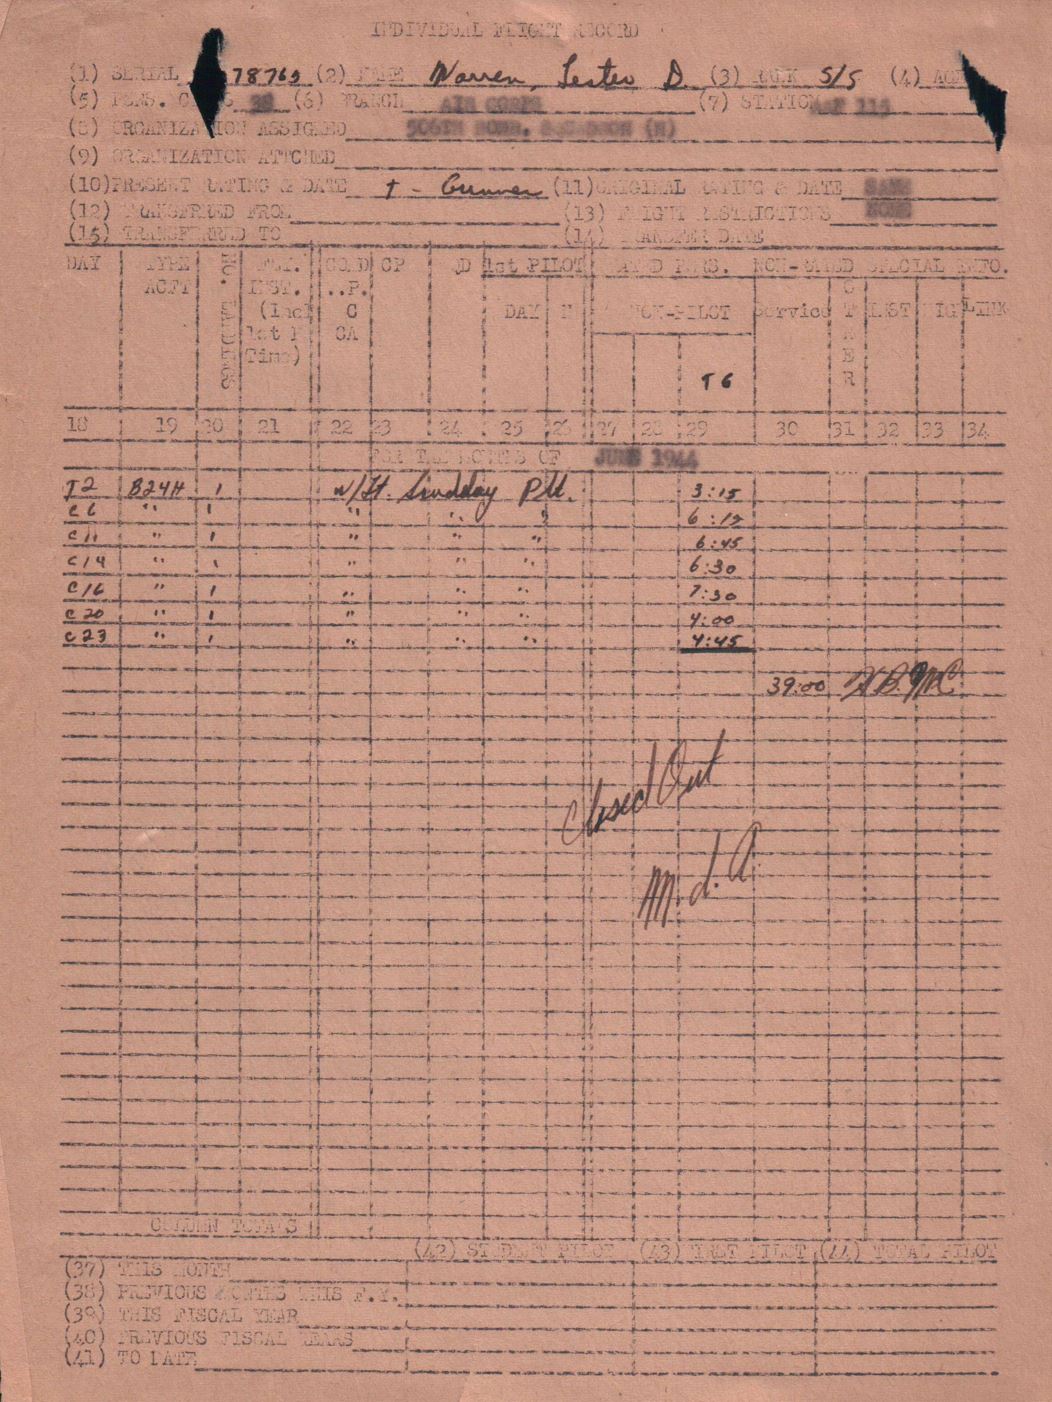 INDIVIDUAL FLIGHT RECORD
(1) SERIAL 78763 (2) NAME Warren, Lester D. (3) RANK S/S (4) AGE
(5) PERS. CLASS 38 (6) BRANCH AIR CORPS (7) STATION AAF 115
(8) ORGANIZATION ASSIGNED 506TH BOMB. SQUADRON (H)
(9) ORGANIZATION ATTCHED
(10) PRESENT RATING & DATE + - Gunner (11) ORIGINAL RATING & DATE SAME
(12) TRANSFRED FROM (13) FLIGHT RESTRICTIONS NONE
(15) TRANSFERRED TO (14) TRANSFER DATE
DAY TYPE ACFT NO. LANDINGS INST. (Incl 1st P Time) C CA CP 1st PILOT DAY N RATED PERS. NON-PILOT T6 NON-RATED Service OTHER SPECIAL INFO. INST NIG LINK
18 19 20 21 22 23 24 25 26 27 28 29 30 31 32 33 34
FOR THE MONTHS OF JUNE 1944
J2 B24H 1 w/Lt. Lindday Plt. 3:15
C6 " 1 " " " 6:15
C11 " 1 " " " 6:45
C14 " 1 " " " 6:30
C16 " 1 " " " 7:30
C20 " 1 " " " 4:00
C23 " 1 " " " 4:45
39:00
Closed Out
M.I.A.
COLUMN TOTALS
(42) STUDENT PILOT (43) FIRST PILOT (44) TOTAL PILOT
(37) THIS MONTH
(38) PREVIOUS MONTHS THIS F.Y.
(39) THIS FISCAL YEAR
(40) PREVIOUS FISCAL YEARS
(41) TO DATE